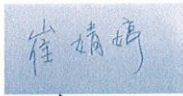 崔婧婷